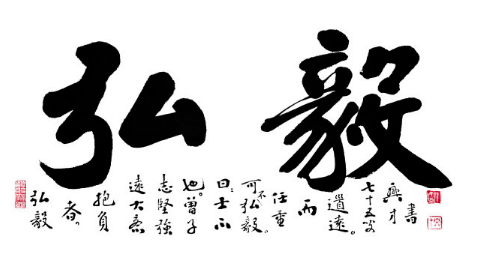 弘毅
弘毅
者。
抱負
遠大意
志堅強
也。曾子
曰：士不
可不弘毅。
任重
而
道遠。
七十五岁
興才
書